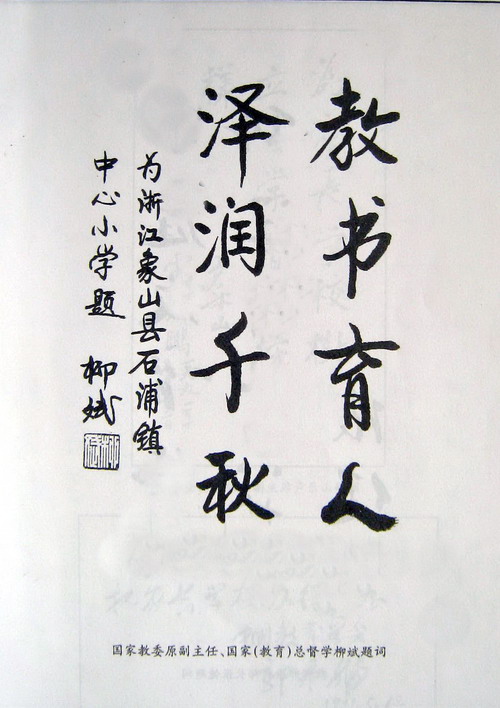 教书育人
泽润千秋
为浙江象山县石浦镇
中心小学题 柳斌
国家教委原副主任、国家(教育)总督学柳斌题词